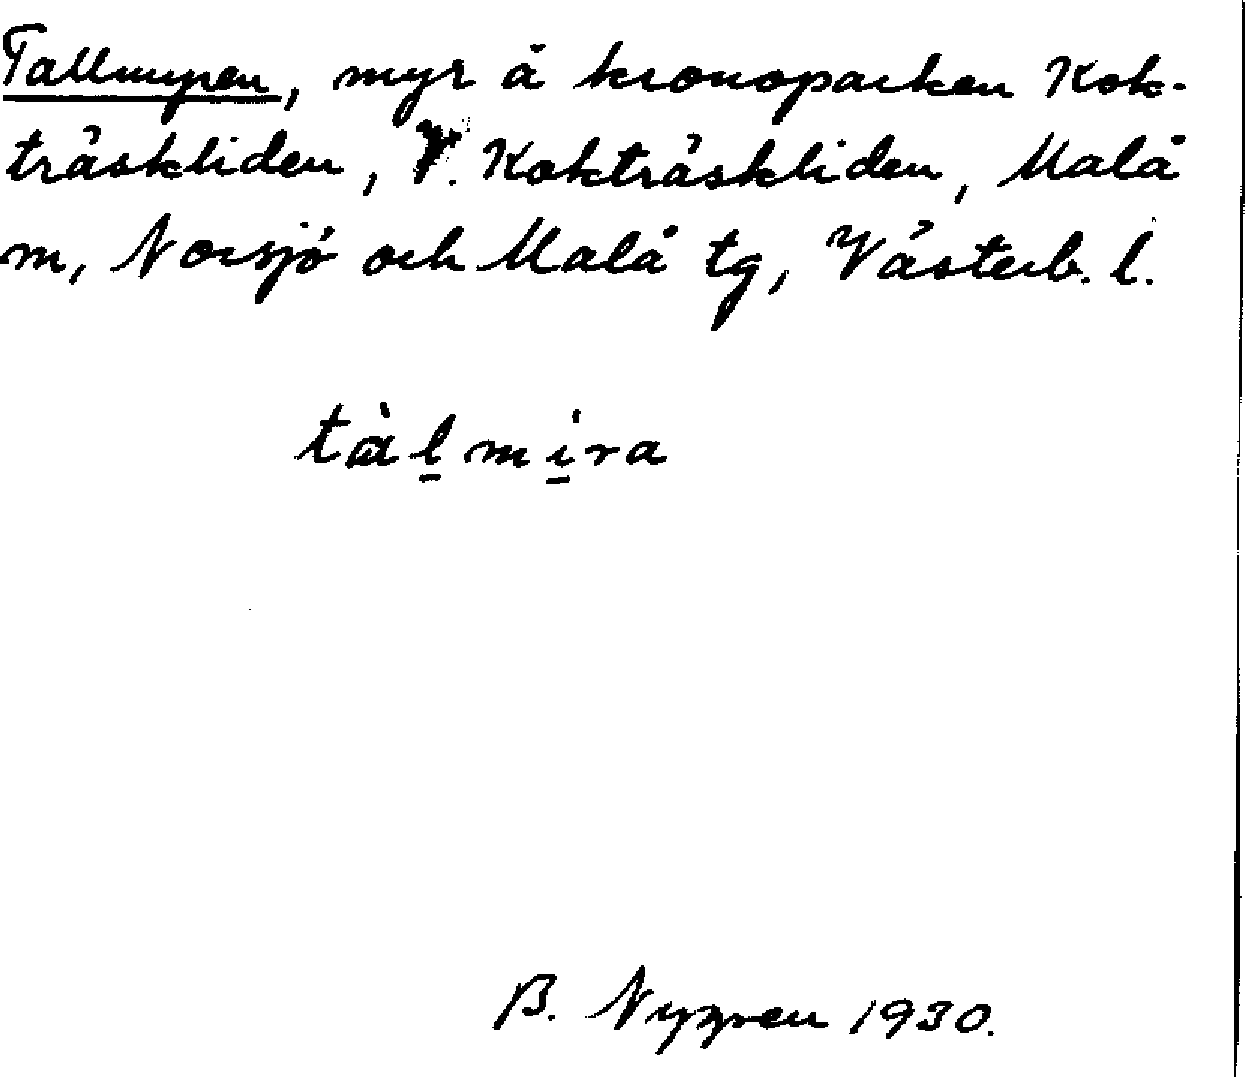 Tallmyren, myr å kronoparken Kok-
träskliden, V. Kokträskliden, Malå
m, Norsjö och Malå tg, Västerb. l.
tàl̠mi̠ra
B. Nygren 1930.